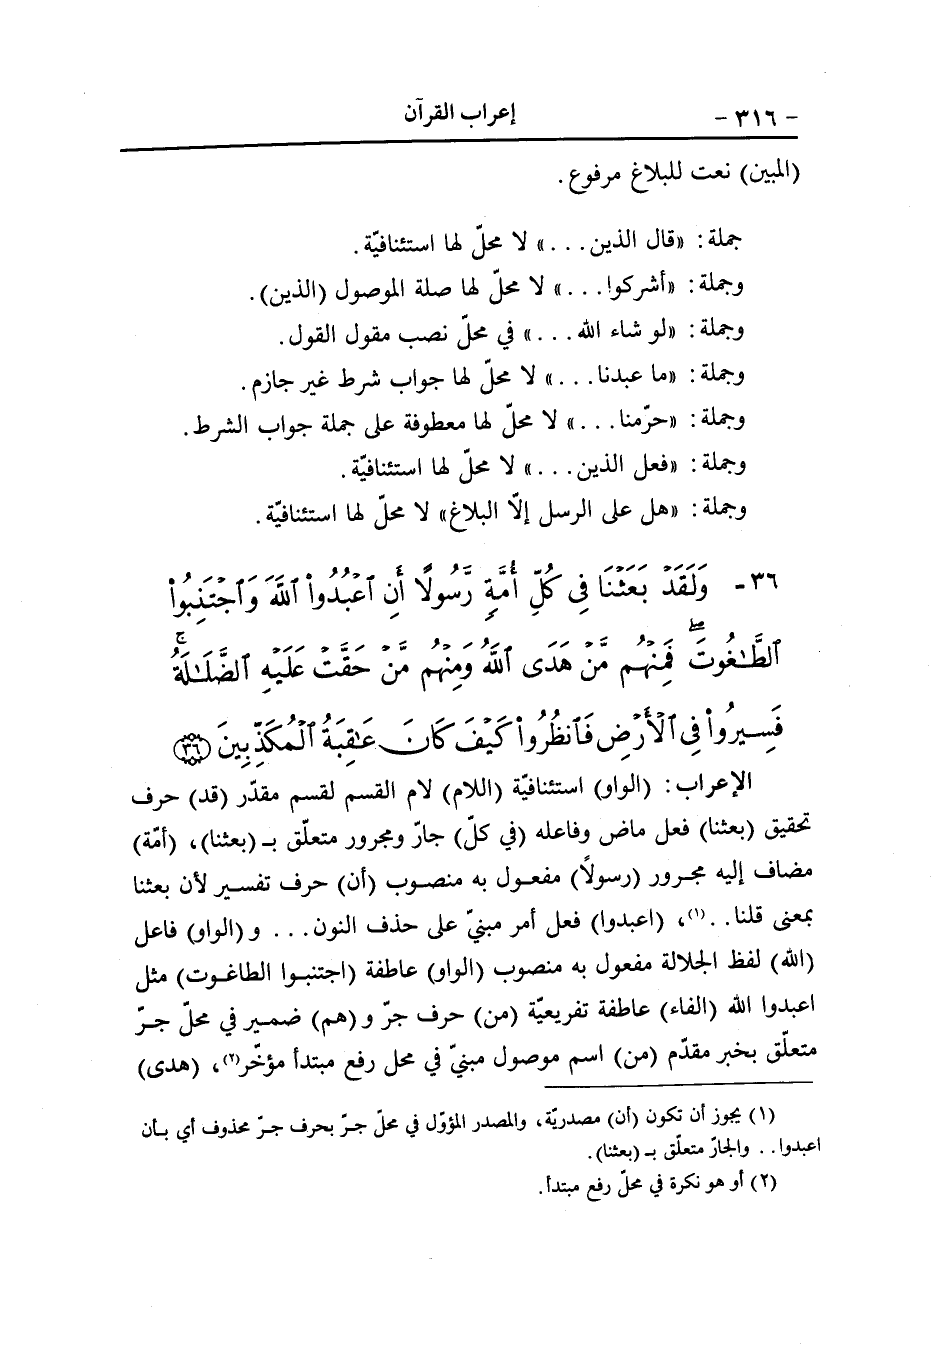 - ٣١٦ -
إعراب القرآن
(المبين) نعت للبلاغ مرفوع.
جملة: «قال الذين...» لا محلّ لها استئنافيّة.
وجملة: «أشركوا...» لا محلّ لها صلة الموصول (الذين).
وجملة: «لو شاء الله...» في محلّ نصب مقول القول.
وجملة: «ما عبدنا...» لا محلّ لها جواب شرط غير جازم.
وجملة: «حرّمنا...» لا محلّ لها معطوفة على جملة جواب الشرط.
وجملة: «فعل الذين...» لا محلّ لها استئنافيّة.
وجملة: «هل على الرسل إلّا البلاغ» لا محلّ لها استئنافيّة.
٣٦- وَلَقَدْ بَعَثْنَا فِى كُلِّ أُمَّةٍ رَّسُولًا أَنِ ٱعْبُدُوا۟ ٱللَّهَ وَٱجْتَنِبُوا۟
ٱلطَّٰغُوتَ ۖ فَمِنْهُم مَّنْ هَدَى ٱللَّهُ وَمِنْهُم مَّنْ حَقَّتْ عَلَيْهِ ٱلضَّلَٰلَةُ ۚ
فَسِيرُوا۟ فِى ٱلْأَرْضِ فَٱنظُرُوا۟ كَيْفَ كَانَ عَٰقِبَةُ ٱلْمُكَذِّبِينَ ﴿٣٦﴾
الإعراب: (الواو) استئنافيّة (اللام) لام القسم لقسم مقدّر (قد) حرف
تحقيق (بعثنا) فعل ماض وفاعله (في كلّ) جارّ ومجرور متعلّق بـ (بعثنا)، (أمّة)
مضاف إليه مجرور (رسولاً) مفعول به منصوب (أن) حرف تفسير لأن بعثنا
بمعنى قلنا..(١)، (اعبدوا) فعل أمر مبنيّ على حذف النون... و (الواو) فاعل
(الله) لفظ الجلالة مفعول به منصوب (الواو) عاطفة (اجتنبوا الطاغوت) مثل
اعبدوا الله (الفاء) عاطفة تفريعيّة (من) حرف جرّ و (هم) ضمير في محلّ جرّ
متعلّق بخبر مقدّم (من) اسم موصول مبنيّ في محل رفع مبتدأ مؤخّر(٢)، (هدى)
(١) يجوز أن تكون (أن) مصدريّة، والمصدر المؤوّل في محلّ جرّ بحرف جرّ محذوف أي بأن
اعبدوا.. والجارّ متعلّق بـ (بعثنا).
(٢) أو هو نكرة في محلّ رفع مبتدأ.